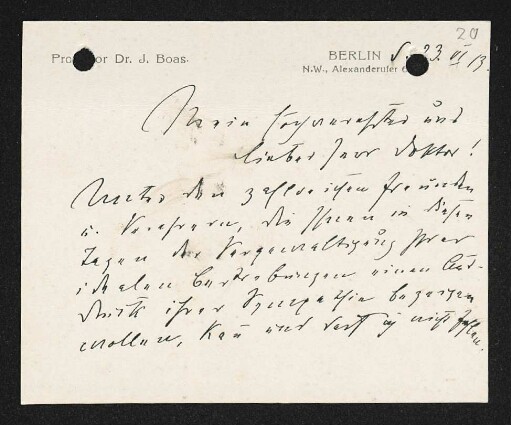 20
Professor Dr. J. Boas.
BERLIN d. 23. VI 13.
N.W., Alexanderufer
Mein hochverehrter und
lieber Herr Doktor!
Unter den zahlreichen Freunden
u. Verehrern, die Ihnen in diesen
Tagen der Vergewaltigung Ihrer
idealen Bestrebungen einen Aus-
druck ihrer Sympathie bezeigen
wollen, kann und darf ich nicht fehlen.